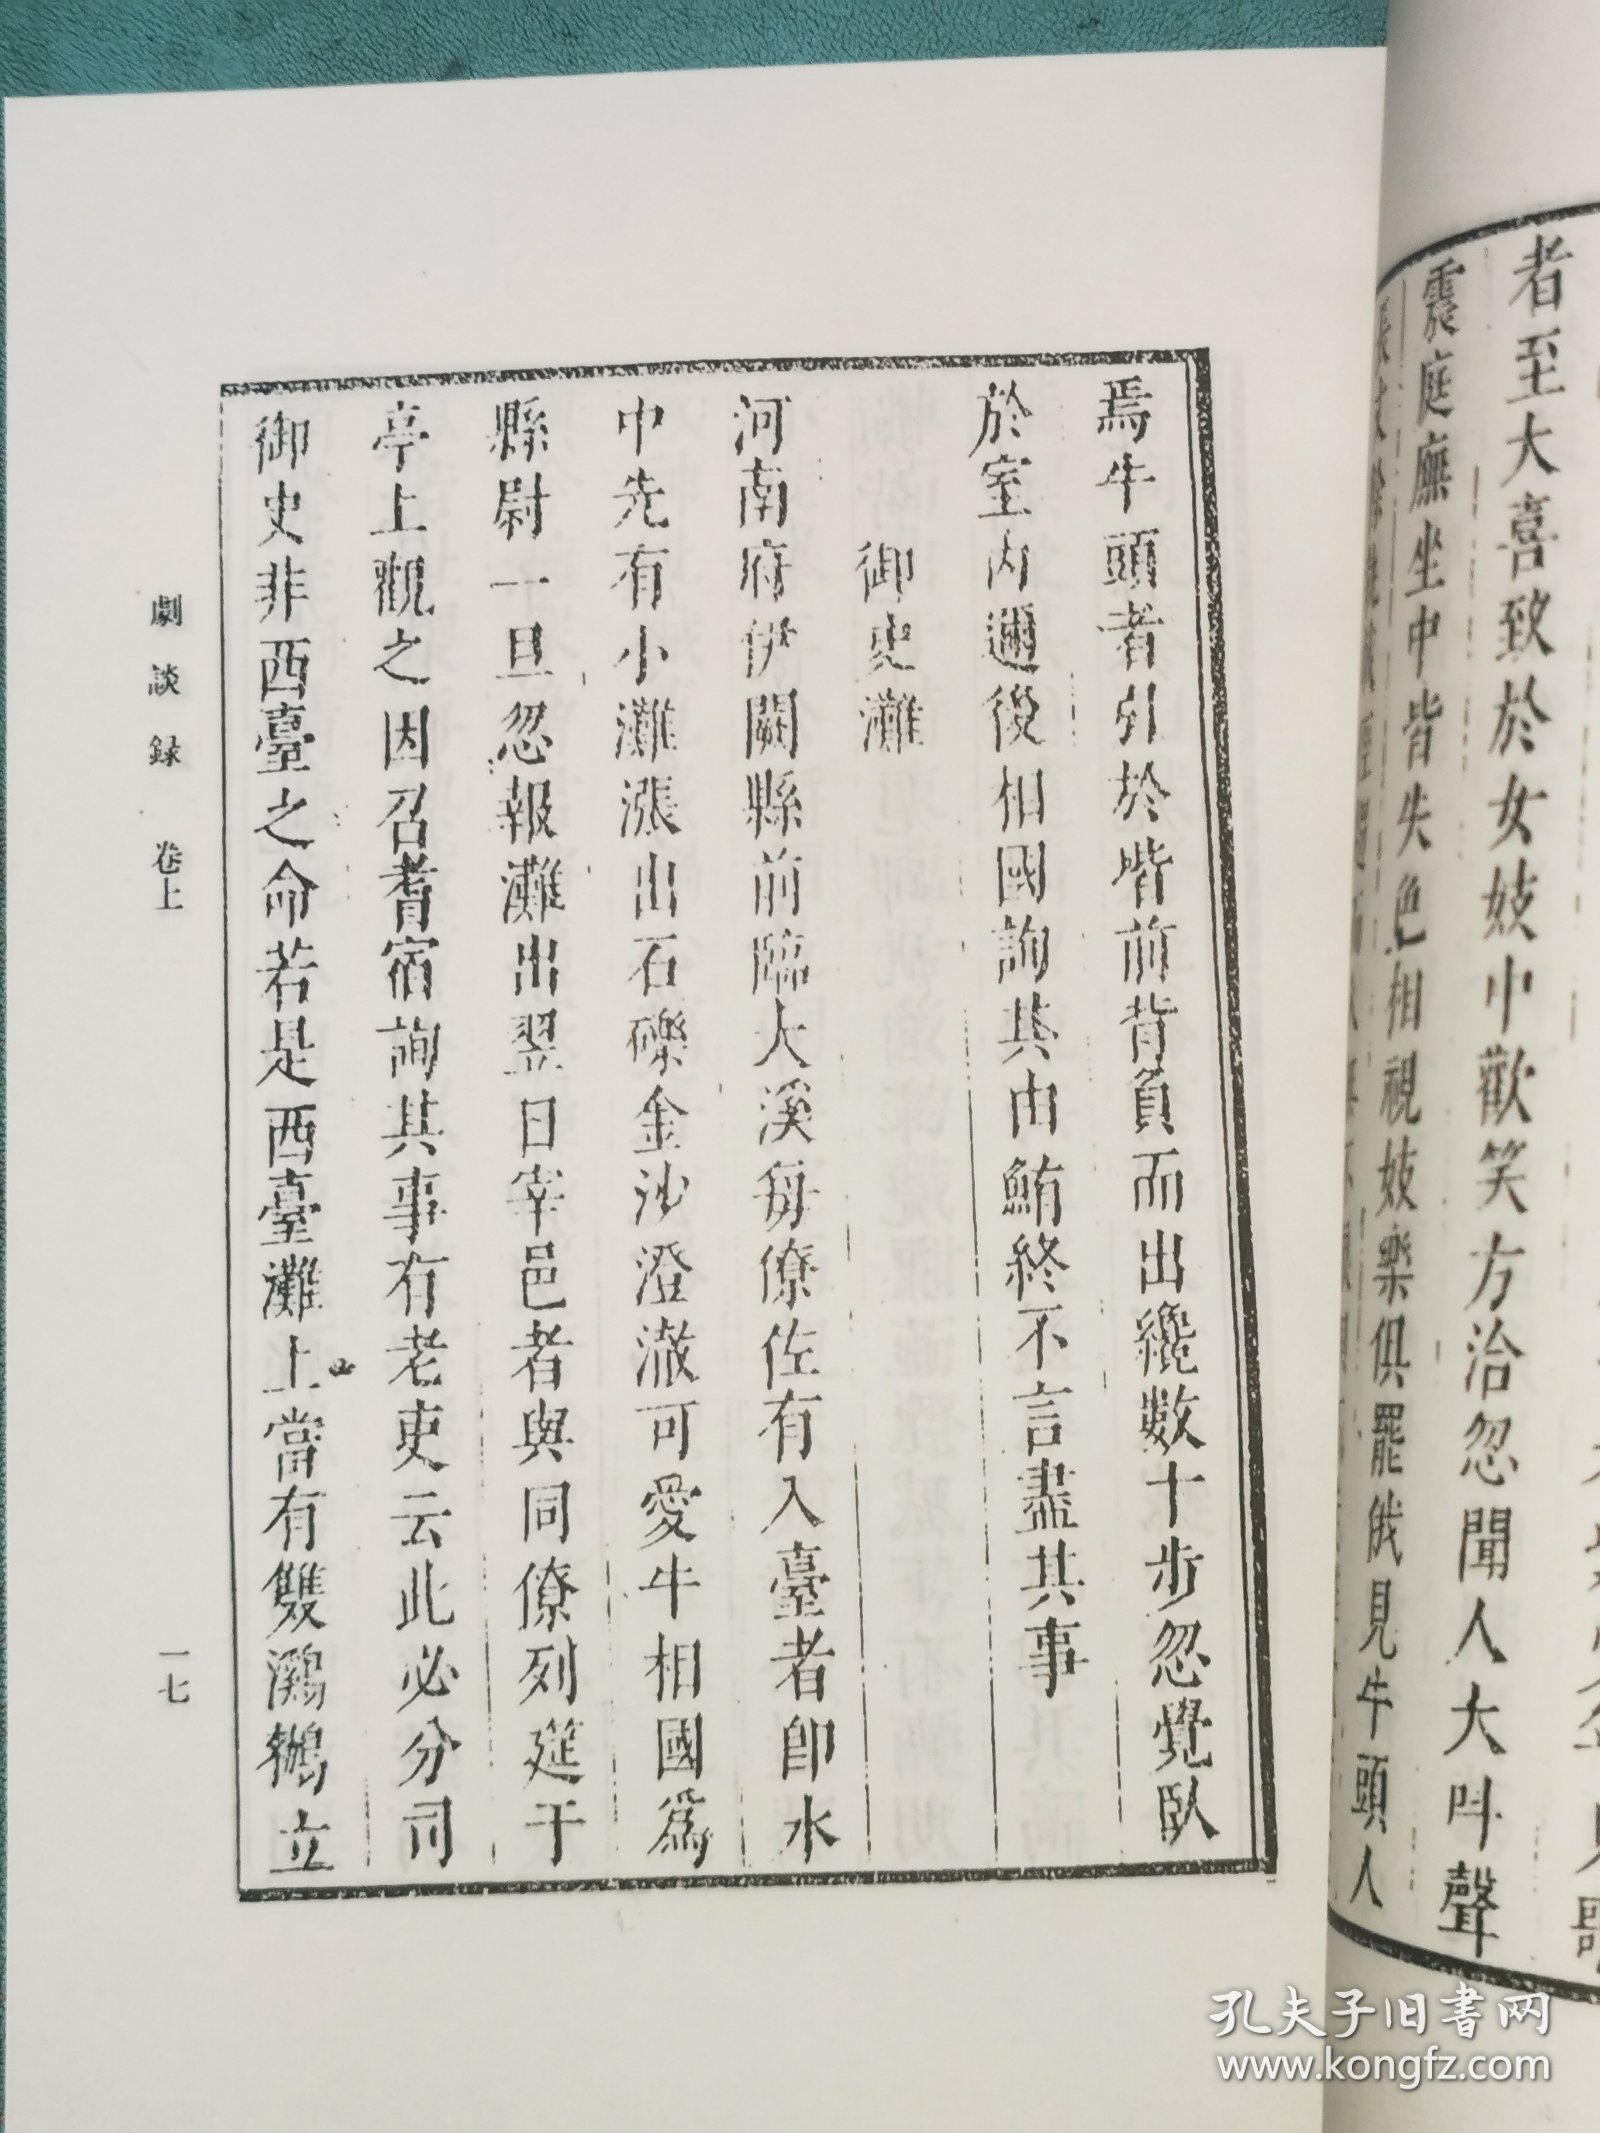 者至大喜致於女妓中歡笑方洽忽聞人大呌聲
震庭廡坐中皆失色相視妓樂俱罷俄見牛頭人
焉牛頭者引於堦前背負而出纔數十步忽覺臥
於室內邇後相國詢其由鮪終不言盡其事
御史灘
河南府伊闕縣前臨大溪每僚佐有入臺者即水
中先有小灘漲出石礫金沙澄澈可愛牛相國爲
縣尉一旦忽報灘出翌日宰邑者與同僚列筵于
亭上觀之因召耆宿詢其事有老吏云此必分司
御史非西臺之命若是西臺灘上當有雙鸂鶒立
劇談録 卷上
一七
孔夫子旧书网
www.kongfz.com